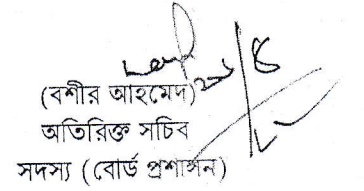 (বশীর আহমেদ)
অতিরিক্ত সচিব
সদস্য (বোর্ড প্রশাসন)